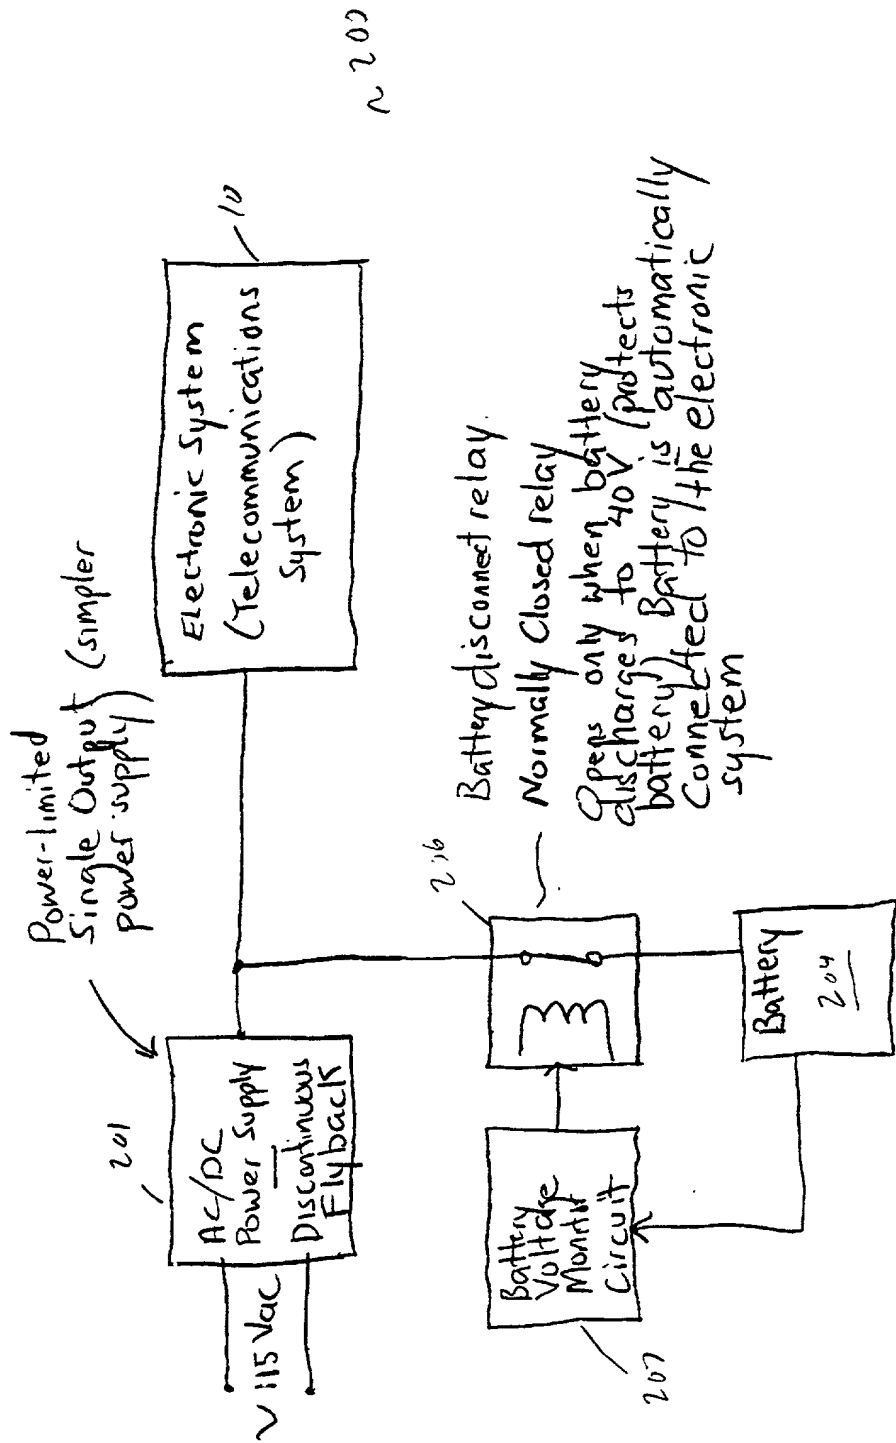 ~ 200
Power-limited
Single Output (simpler
power supply)
201
AC/DC
Power Supply
Discontinuous
Flyback
~ 115 Vac
10
Electronic System
(Telecommunications
System)
206
Battery disconnect relay.
Normally Closed relay
Opens only when battery
discharges to 40V (protects
battery) Battery is automatically
Connected to the electronic
system
Battery
Voltage
Monitor
Circuit
207
Battery
204